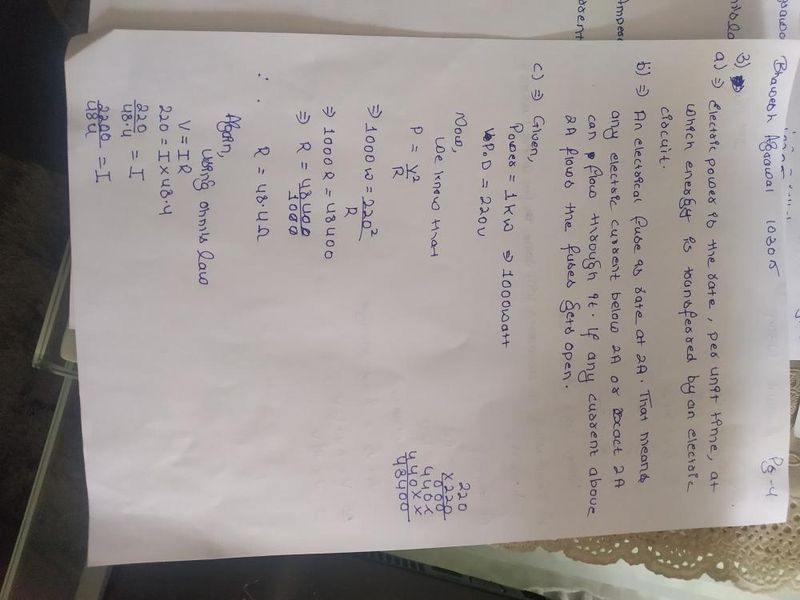 Bhawesh Agrawal 10305 Pg-4
3)
a) ⇒ Electric power is the rate, per unit time, at
which energy is transferred by an electric
circuit.
b) ⇒ An electrical fuse is rate at 2A. That means
any electric current below 2A or exact 2A
can flow through it. If any current above
2A flows the fuses gets open.
c) ⇒ Given,
Power = 1kw ⇒ 1000watt
P.D = 220v
Now,
we know that
P = V²/R
⇒ 1000w = 220²/R
⇒ 1000R = 48400
⇒ R = 48400/1000
∴ R = 48.4Ω
Again,
using ohm's law
V = IR
220 = I × 48.4
220/48.4 = I
2200/484 = I
220
×220
000
440×
440××
48400